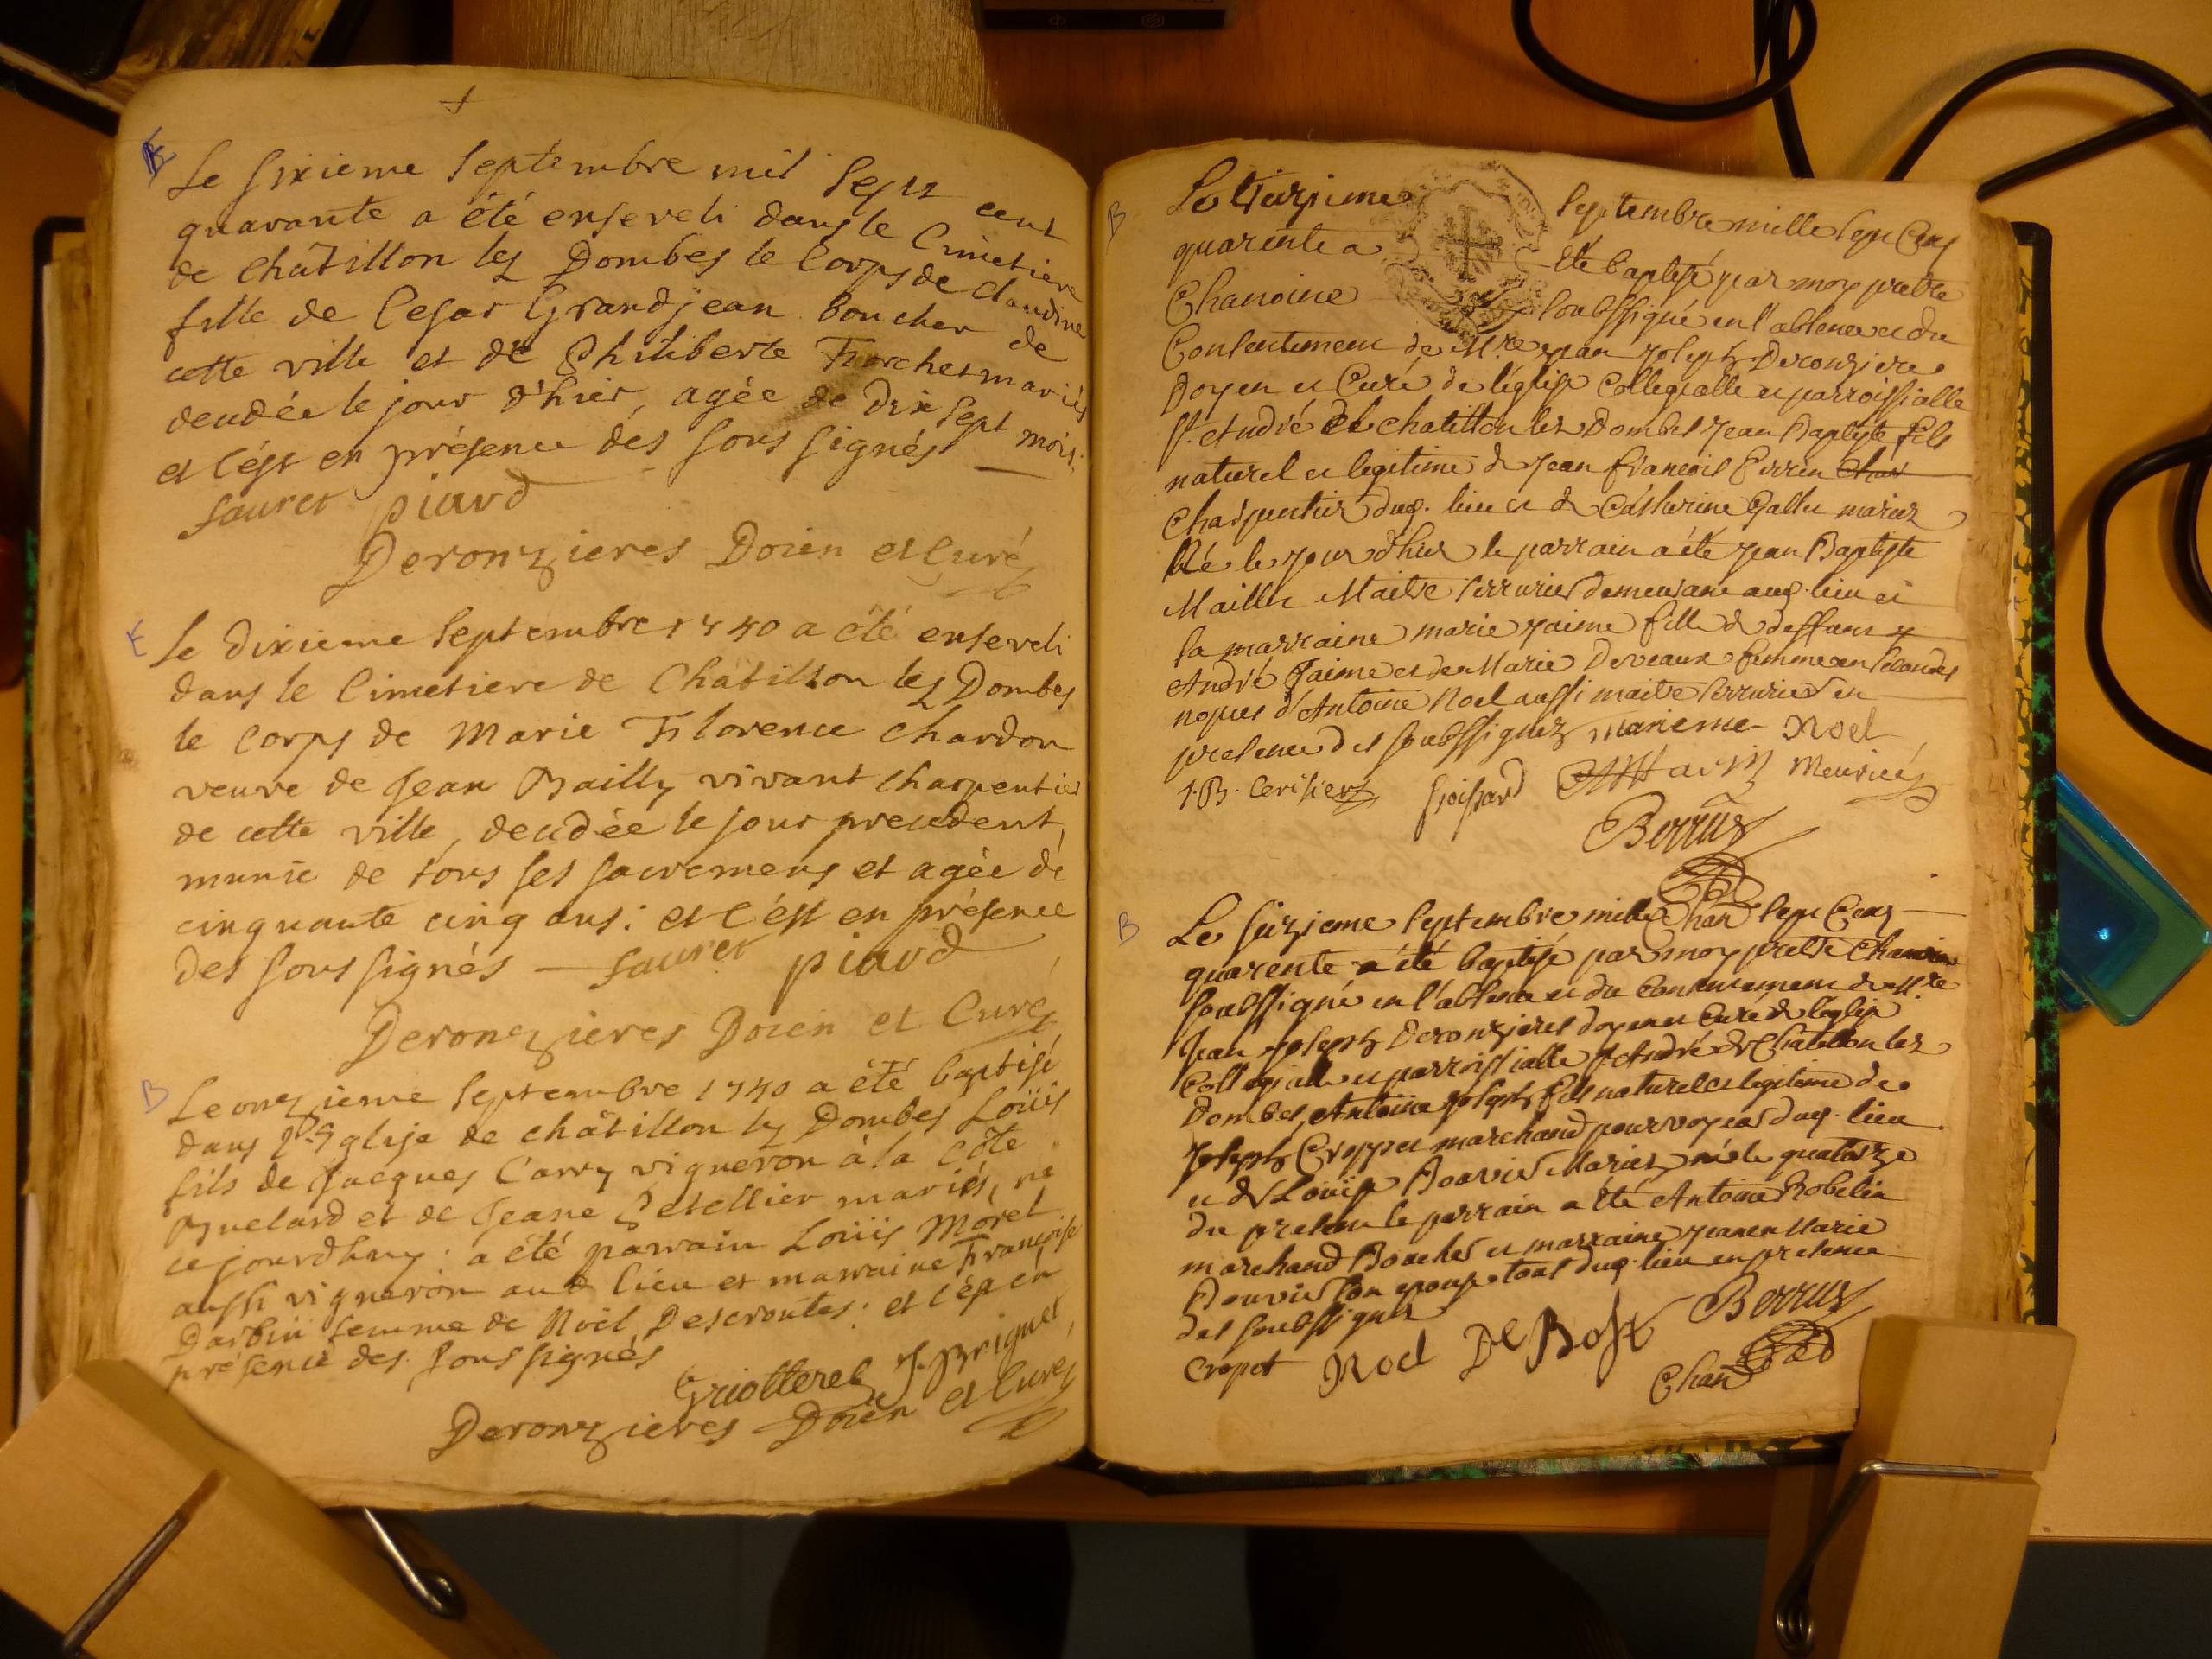 E
Le sixieme septembre mil sept cent
quarante a été enseveli dans le cimetiere
de châtillon les Dombes le corps de claudine
fille de Cesar Grandjean boucher de
cette ville et de Philiberte mariés
decedée le jour d'hier, agée de Dix sept mois;
et c'est en présence des sous signés
sauret piard
Deronzieres Doien et Curé
E
le dixieme septembre 1740 a été enseveli
dans le cimetiere de Châtillon les Dombes
le corps de Marie Florence chardon
veuve de Jean Bailly vivant charpentier
de cette ville, decedée le jour precedent,
munie de tous ses sacremens et agée de
cinquante cinq ans; et c'est en présence
des sous signés sauret piard
Deronzieres Doien et Curé
B
Le onzieme septembre 1740 a été baptisé
dans l'Eglise de châtillon les Dombes Loüis
fils de Jacques Carry vigneron à la Côte
et de Jeane mariés, né
ce jourdhuy: a été parrain Loüis Moret
aussi vigneron aud lieu et marraine Françoise
Darbin femme de Noël Descroutes; et c'est en
présence des sous signés
Griotteret J. Briguet
Deronzieres Doien et Curé
B
Le septembre mille sept Cens
quarente a été baptisé par moy pretre
Chanoine soubssigné en l'absence et du
Consentement de Mre Jean Joseph Deronzieres
Doyen et Curé de l'église Collegialle et parroissialle
St. André de chatillon les Dombes Jean Baptiste fils
naturel et legitime de Jean francois Perrin char
charpentier dud. lieu et de Catherine Gallet mariez
Né le jour d'hier le parrain a été Jean Baptiste
Maillet Maitre serrurier demeurant aud. lieu et
la marraine marie Jaime fille de deffunt
André Jaime et de Marie Deveaux femme en secondes
nopces d'Antoine Noel aussi maitre serrurier en
presence des soubssignez marieme Noel
J.B. Cerisier Meunier
Berrus
Chan
B
Le seizieme septembre mille sept Cens
quarente a été baptisé par moy pretre Chanoine
soubssigné en l'absence et du Consentement de Mre
Jean Joseph Deronzieres doyen et Curé de l'eglise
Collegialle et parroissialle St André de Chatillon les
Dombes, Antoine Joseph fils naturel et legitime de
Joseph Croppet marchand pourvoyeur dud. lieu
et de Louise Bouvier Mariez né le quatorze
du present le parrain a été Antoine Robelin
marchand Boucher et marraine Jeane Marie
Bouvier son epouse tous dud. lieu en presence
des soubssignez
cropet Noel De Bost Berrus
Chan